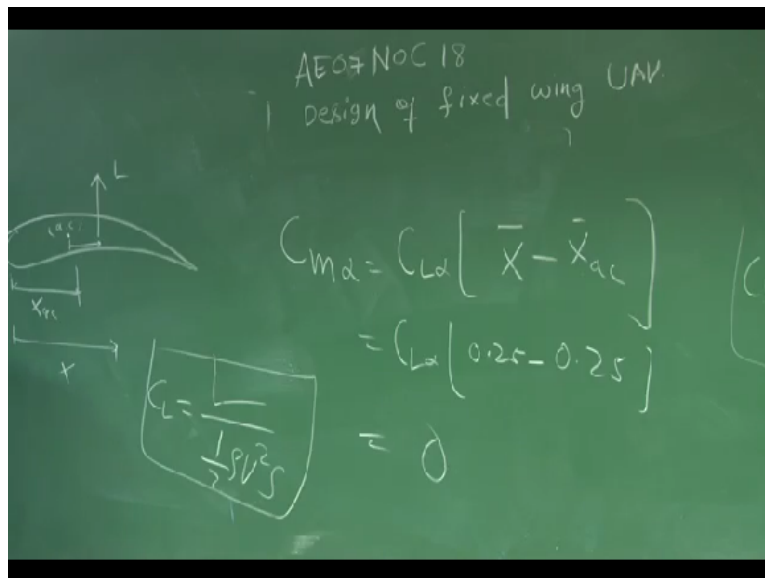 AE07NOC18
Design of fixed wing UAV
L
(a.c)
Xac
x
C_L = L / (1/2 ρV²S)
C_mα = C_Lα [ X̄ − X̄_ac ]
= C_Lα [ 0.25 − 0.25 ]
= 0
C